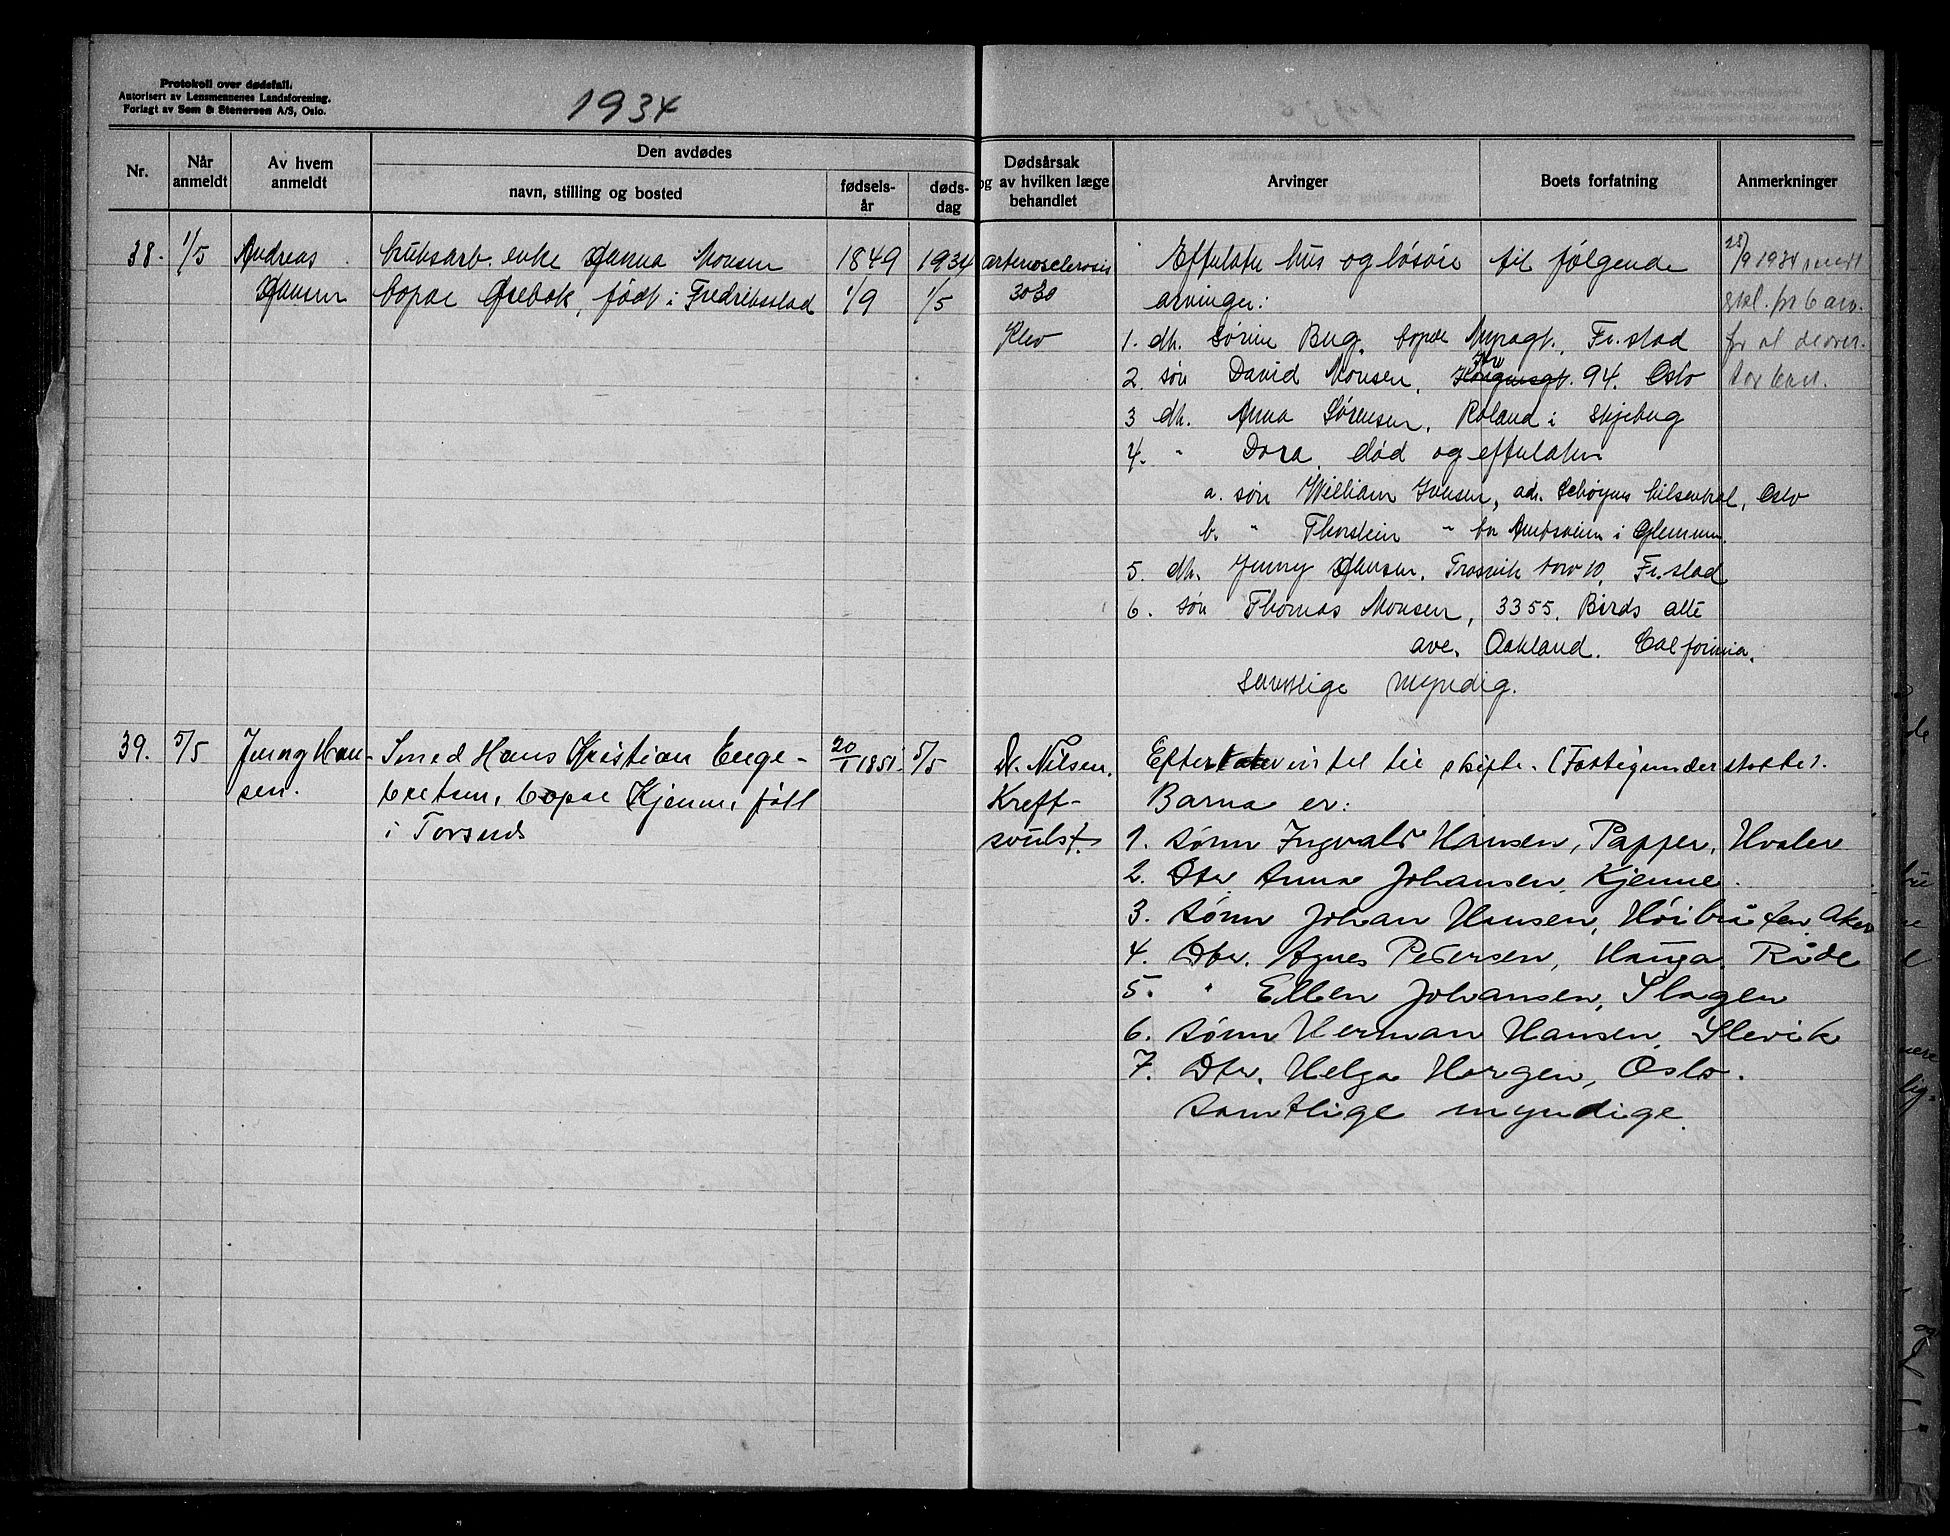 Protokoll over dødsfall.
Autorisert av Lensmennenes Landsforening.
Forlagt av Sem & Stenersen A/S, Oslo.
1934
Nr.
Når anmeldt
Av hvem anmeldt
Den avdødes
navn, stilling og bosted
fødsels-år
døds-dag
Dødsårsak og av hvilken læge behandlet
Arvinger
Boets forfatning
Anmerkninger
38. 1/5 Andreas bruksarb. enke Hanna Monsen 1849 1934 arterosclerosis
Hansen bopæl Ørebæk, født i Fredriksstad 1/9 1/5
Klev
Efterlater hus og løsøre til følgende
arvinger:
1. dtr. Sørine Bug, bopæl Myragt. Fr.stad
2. søn David Monsen, 94. Oslo
3 dtr. Anna Sørensen, Roland i Skjeberg
4. " Dora død og efterlater
a. søn William Jensen, adr. Schøyens bilsentral, Oslo
b. " Thorstein " bor Amtsveien i Glemmen.
5. dtr. Jenny Hansen, Trosvik torv 10, Fr.stad
6. søn Thomas Monsen, 3355. Birds alle
ave. Oakland. California.
Samtlige myndig.
25/9 1934 sendt
skl. for 6 arv.
for at de over-
tar boet.
39. 5/5 Jenny Han- Smed Hans Kristian Enge- 20/1 1851. 5/5 Dr. Nilsen.
sen. bretsen, bopæl Kjenne, født
i Torsnes
Kreft-
svulst.
Efterlater intet til skifte. (Fattigunderstøtte).
Barna er:
1. sønn Ingvald Hansen, Papper, Hvaler
2. Dtr. Anna Johansen, Kjenne.
3. sønn Johan Hansen, Høibråten, Aker
4. Dtr. Agnes Pedersen, Hauga. Råde
5. " Ellen Johansen, Slagen
6. sønn Herman Hansen, Slevik
7. Dtr. Helga Horgen, Oslo.
Samtlige myndige.